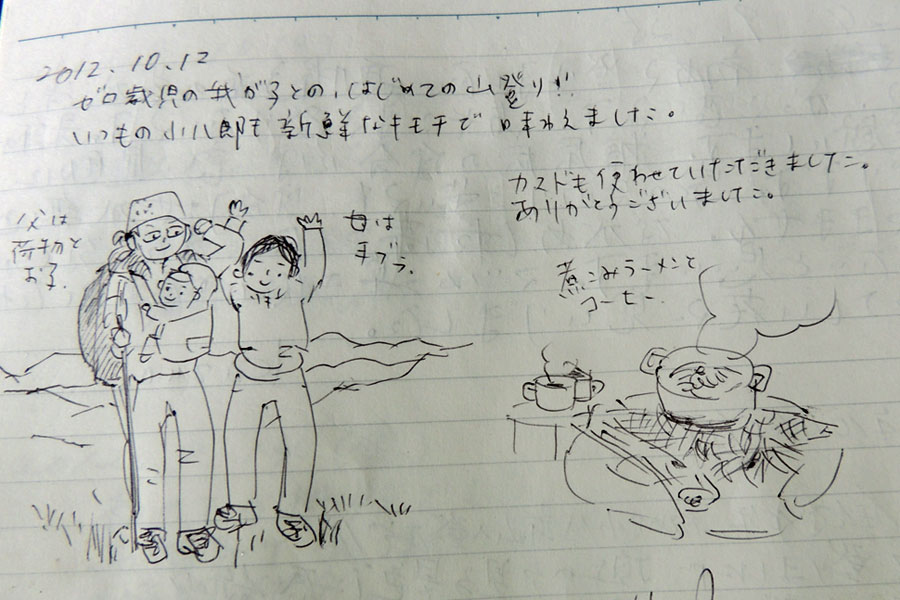 2012.10.12
ゼロ歳児の我が子との、はじめての山登り!!
いつもの小八郎も新鮮なキモチで味わえました。
カマドも使わせていただきました。
ありがとうございました。
父は
荷物と
お子。
母は
手ブラ。
煮こみラーメンと
コーヒー。